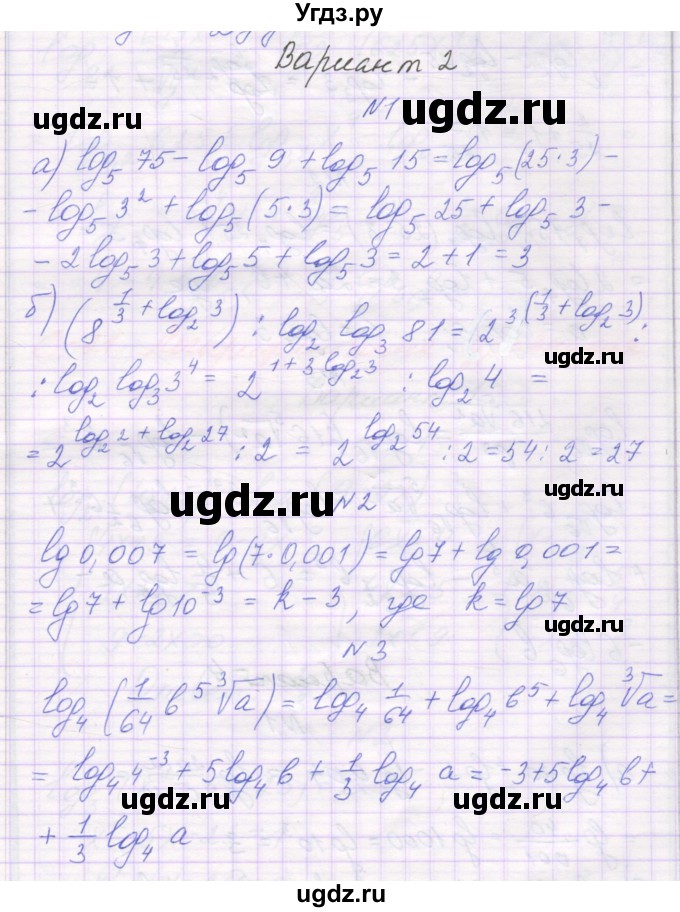 Угдз.ру
Вариант 2
ugdz.ru ugdz.ru
N1
а) log₅ 75 - log₅ 9 + log₅ 15 = log₅ (25·3) -
- log₅ 3² + log₅ (5·3) = log₅ 25 + log₅ 3 -
- 2 log₅ 3 + log₅ 5 + log₅ 3 = 2 + 1 = 3
ugdz.ru
б) (8^(1/3 + log₂ 3)) : log₂ log₃ 81 = (2^(3(1/3 + log₂ 3)) :
ugdz.ru
: log₂ log₃ 3⁴ = 2^(1 + 3 log₂ 3) : log₂ 4 =
= 2^(log₂ 2 + log₂ 27) : 2 = 2^(log₂ 54) : 2 = 54 : 2 = 27
ugdz.ru ugdz.ru
N2
lg 0,007 = lg(7·0,001) = lg 7 + lg 0,001 =
= lg 7 + lg 10⁻³ = k - 3, где k = lg 7
ugdz.ru
N3
log₄ (1/64 b⁵ ∛a) = log₄ 1/64 + log₄ b⁵ + log₄ ∛a =
= log₄ 4⁻³ + 5 log₄ b + 1/3 log₄ a = -3 + 5 log₄ b +
ugdz.ru ugdz.ru
+ 1/3 log₄ a
ugdz.ru